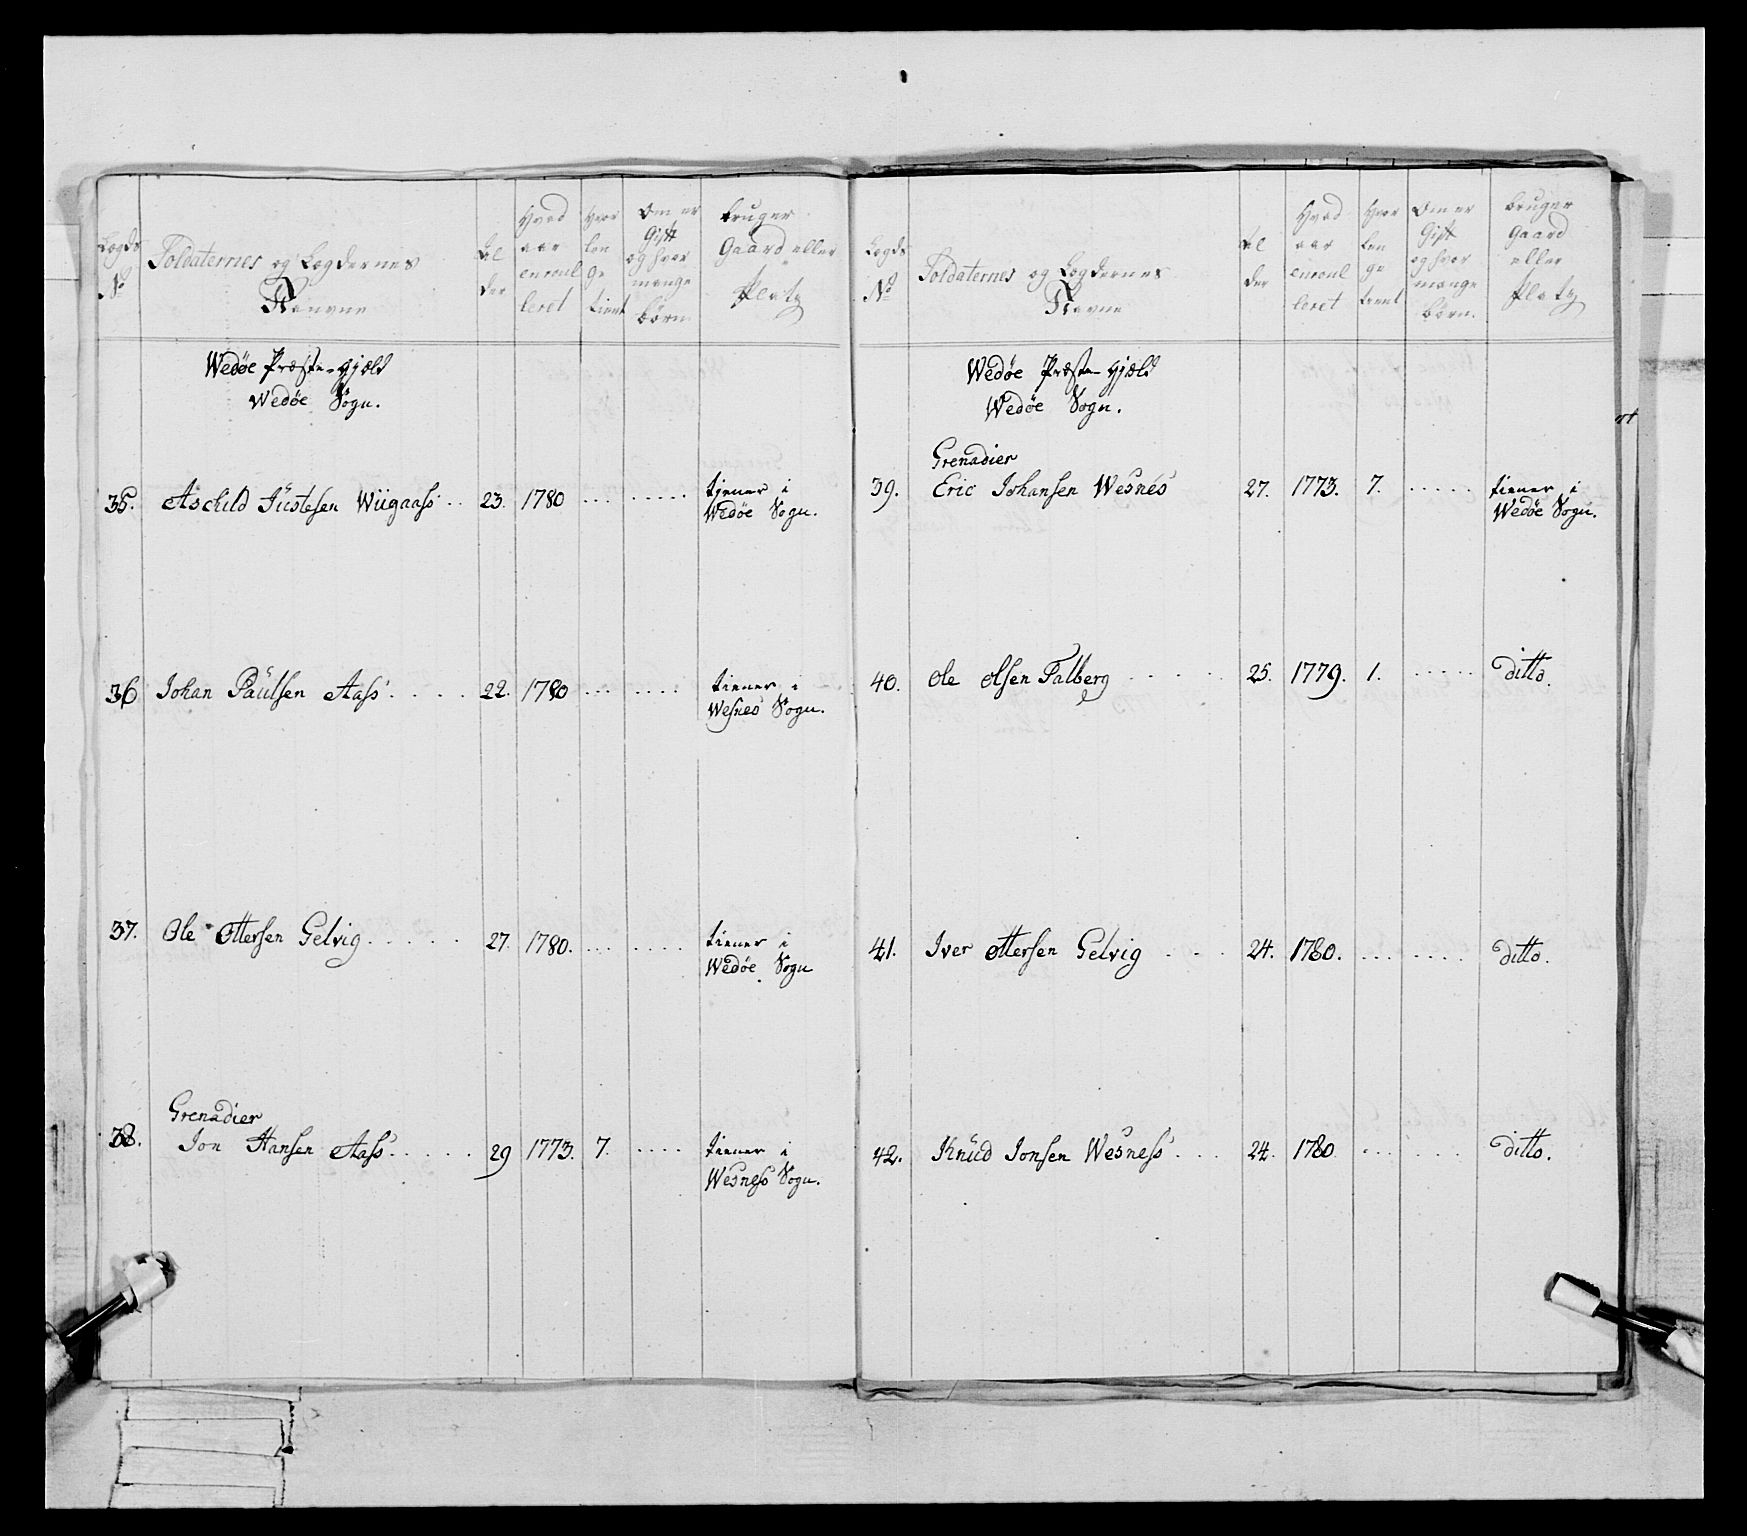 Lægds
No
Soldaternes og Lægdernes
Navne
Al
der
Hvad
aar
enroul
leret
Hvor
len
ge
tient
Om er
Gift
og hvor
mange
børn
bruger
Gaard eller
Platz
Wedøe Præste-Gjæld
Wedøe Sogn.
35. Aschild Justesen Wiigaass . . 23. 1780 . . . . . . . . tjener i
Wedøe Sogn.
36 Johan Paulsen Aass . . . . 22. 1780 . . . . . . . tiener i
Wesnes Sogn.
37. Ole Ottersen Gelvig . . . . . 27. 1780. . . . . . . . tiener i
Wedøe Sogn
Grenadier
38. Jon Hansen Aass . . . . . 29 1773. 7. . . . . tiener i
Wesness Sogn.
Lægds
No
Soldaternes og Lægdernes
Navne
Al
der
Hvad
aar
enroul
leret
Hvor
len
ge
tient
Om er
Gift
og hvor
mange
børn.
bruger
Gaard
eller
Platz
Wedøe Præste-Gjæld
Wedøe Sogn.
Grenadier
39. Eric Johansen Wesnes 27. 1773. 7. . . . . . tiener i
Wedøe Sogn.
40. Ole Olsen Falberg . . . . . 25. 1779. 1. . . . . . ditto.
41. Iver Ottersen Gelvig . . . 24. 1780. . . . . . . . ditto.
42. Knud Jonsen Wesness . . . 24. 1780 . . . . . . ditto.